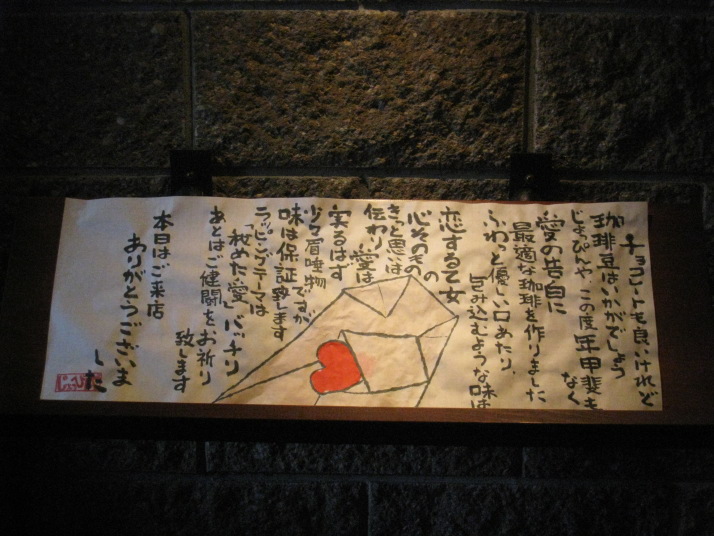 チョコレートも良いけれど
珈琲豆はいかがでしょう
じょぴんや、この度年甲斐も
なく
愛の告白に
最適な珈琲を作りました
ふわっと優しい口あたり、
包み込むような味は
恋する乙女
の
心そのもの
きっと思いは
伝わり愛は
実るはず
少々眉唾物ですが
味は保証致します
ラッピングテーマは
「秘めた愛」バッチリ
あとはご健闘をお祈り
致します
本日はご来店
ありがとうございま
した